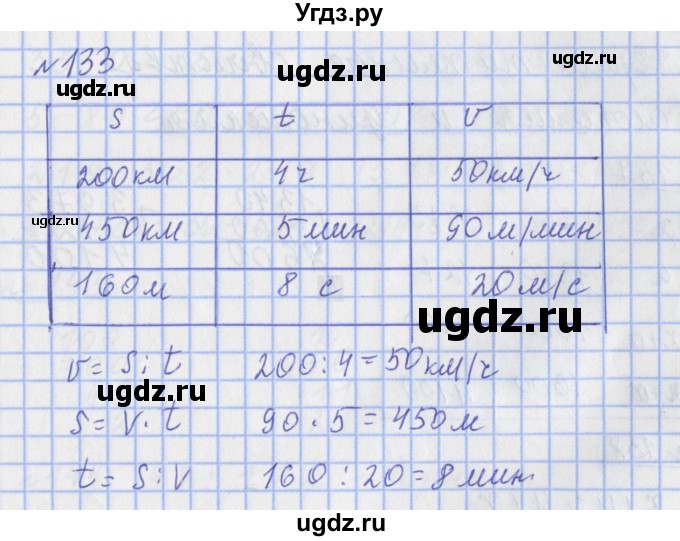 Угдз.ру
№133
ugdz.ru
ugdz.ru
s t v
200км 4ч 50км/ч
ugdz.ru
450км 5 мин 90м/мин
160м 8 с 20м/с
ugdz.ru
v = s : t 200 : 4 = 50км/ч
ugdz.ru
s = v · t 90 · 5 = 450м
t = s : v 160 : 20 = 8 мин
ugdz.ru
ugdz.ru